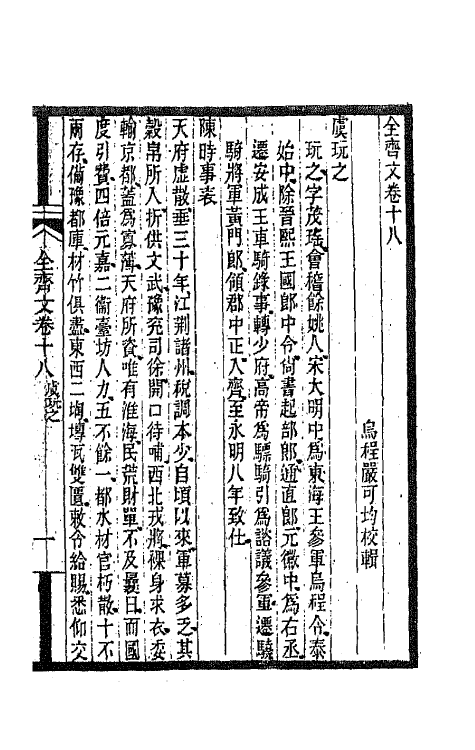 全齊文卷十八
烏程嚴可均校輯
虞玩之
玩之字茂瑤會稽餘姚人宋大明中爲東海王參軍烏程令泰
始中除晉熙王國郎中令尙書起部郎通直郎元徽中爲右丞
遷安成王車騎錄事轉少府高帝爲驃騎引爲諮議參軍遷驍
騎將軍黃門郎領郡中正入齊至永明八年致仕
陳時事表
天府虛散垂三十年江荆諸州稅調本少自頃以來軍募多乏其
穀帛所入折供文武豫兗司徐開口待哺西北戎將裸身求衣委
輸京都蓋爲寡薄天府所資唯有淮海民荒財單不及曩日而國
度引費四倍元嘉二衞臺坊人力五不餘一都水材官朽散十不
兩存備豫都庫材竹俱盡東西二堈塼瓦雙匱敕令給賜悉仰交
全齊文卷十八 虞玩之 一